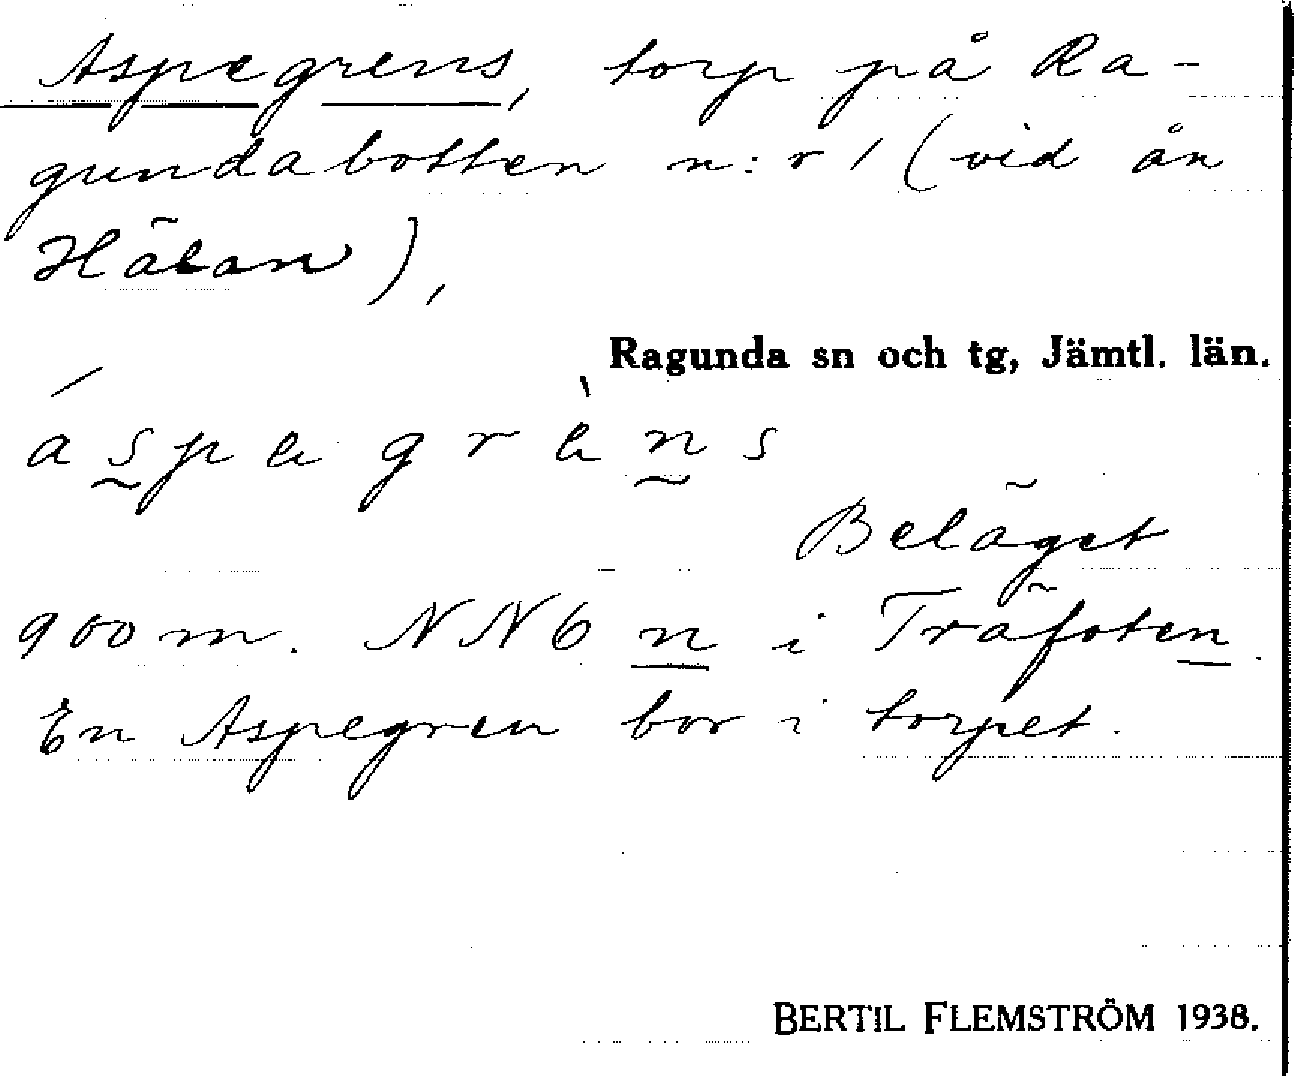 Aspegrens, torp på Ra-
gundabotten n:r 1 (vid ån
Hälan),
Ragunda sn och tg, Jämtl. län.
áspegrèns
Beläget
900 m. NNO n i Träfoten.
En Aspegren bor i torpet.
BERTIL FLEMSTRÖM 1938.